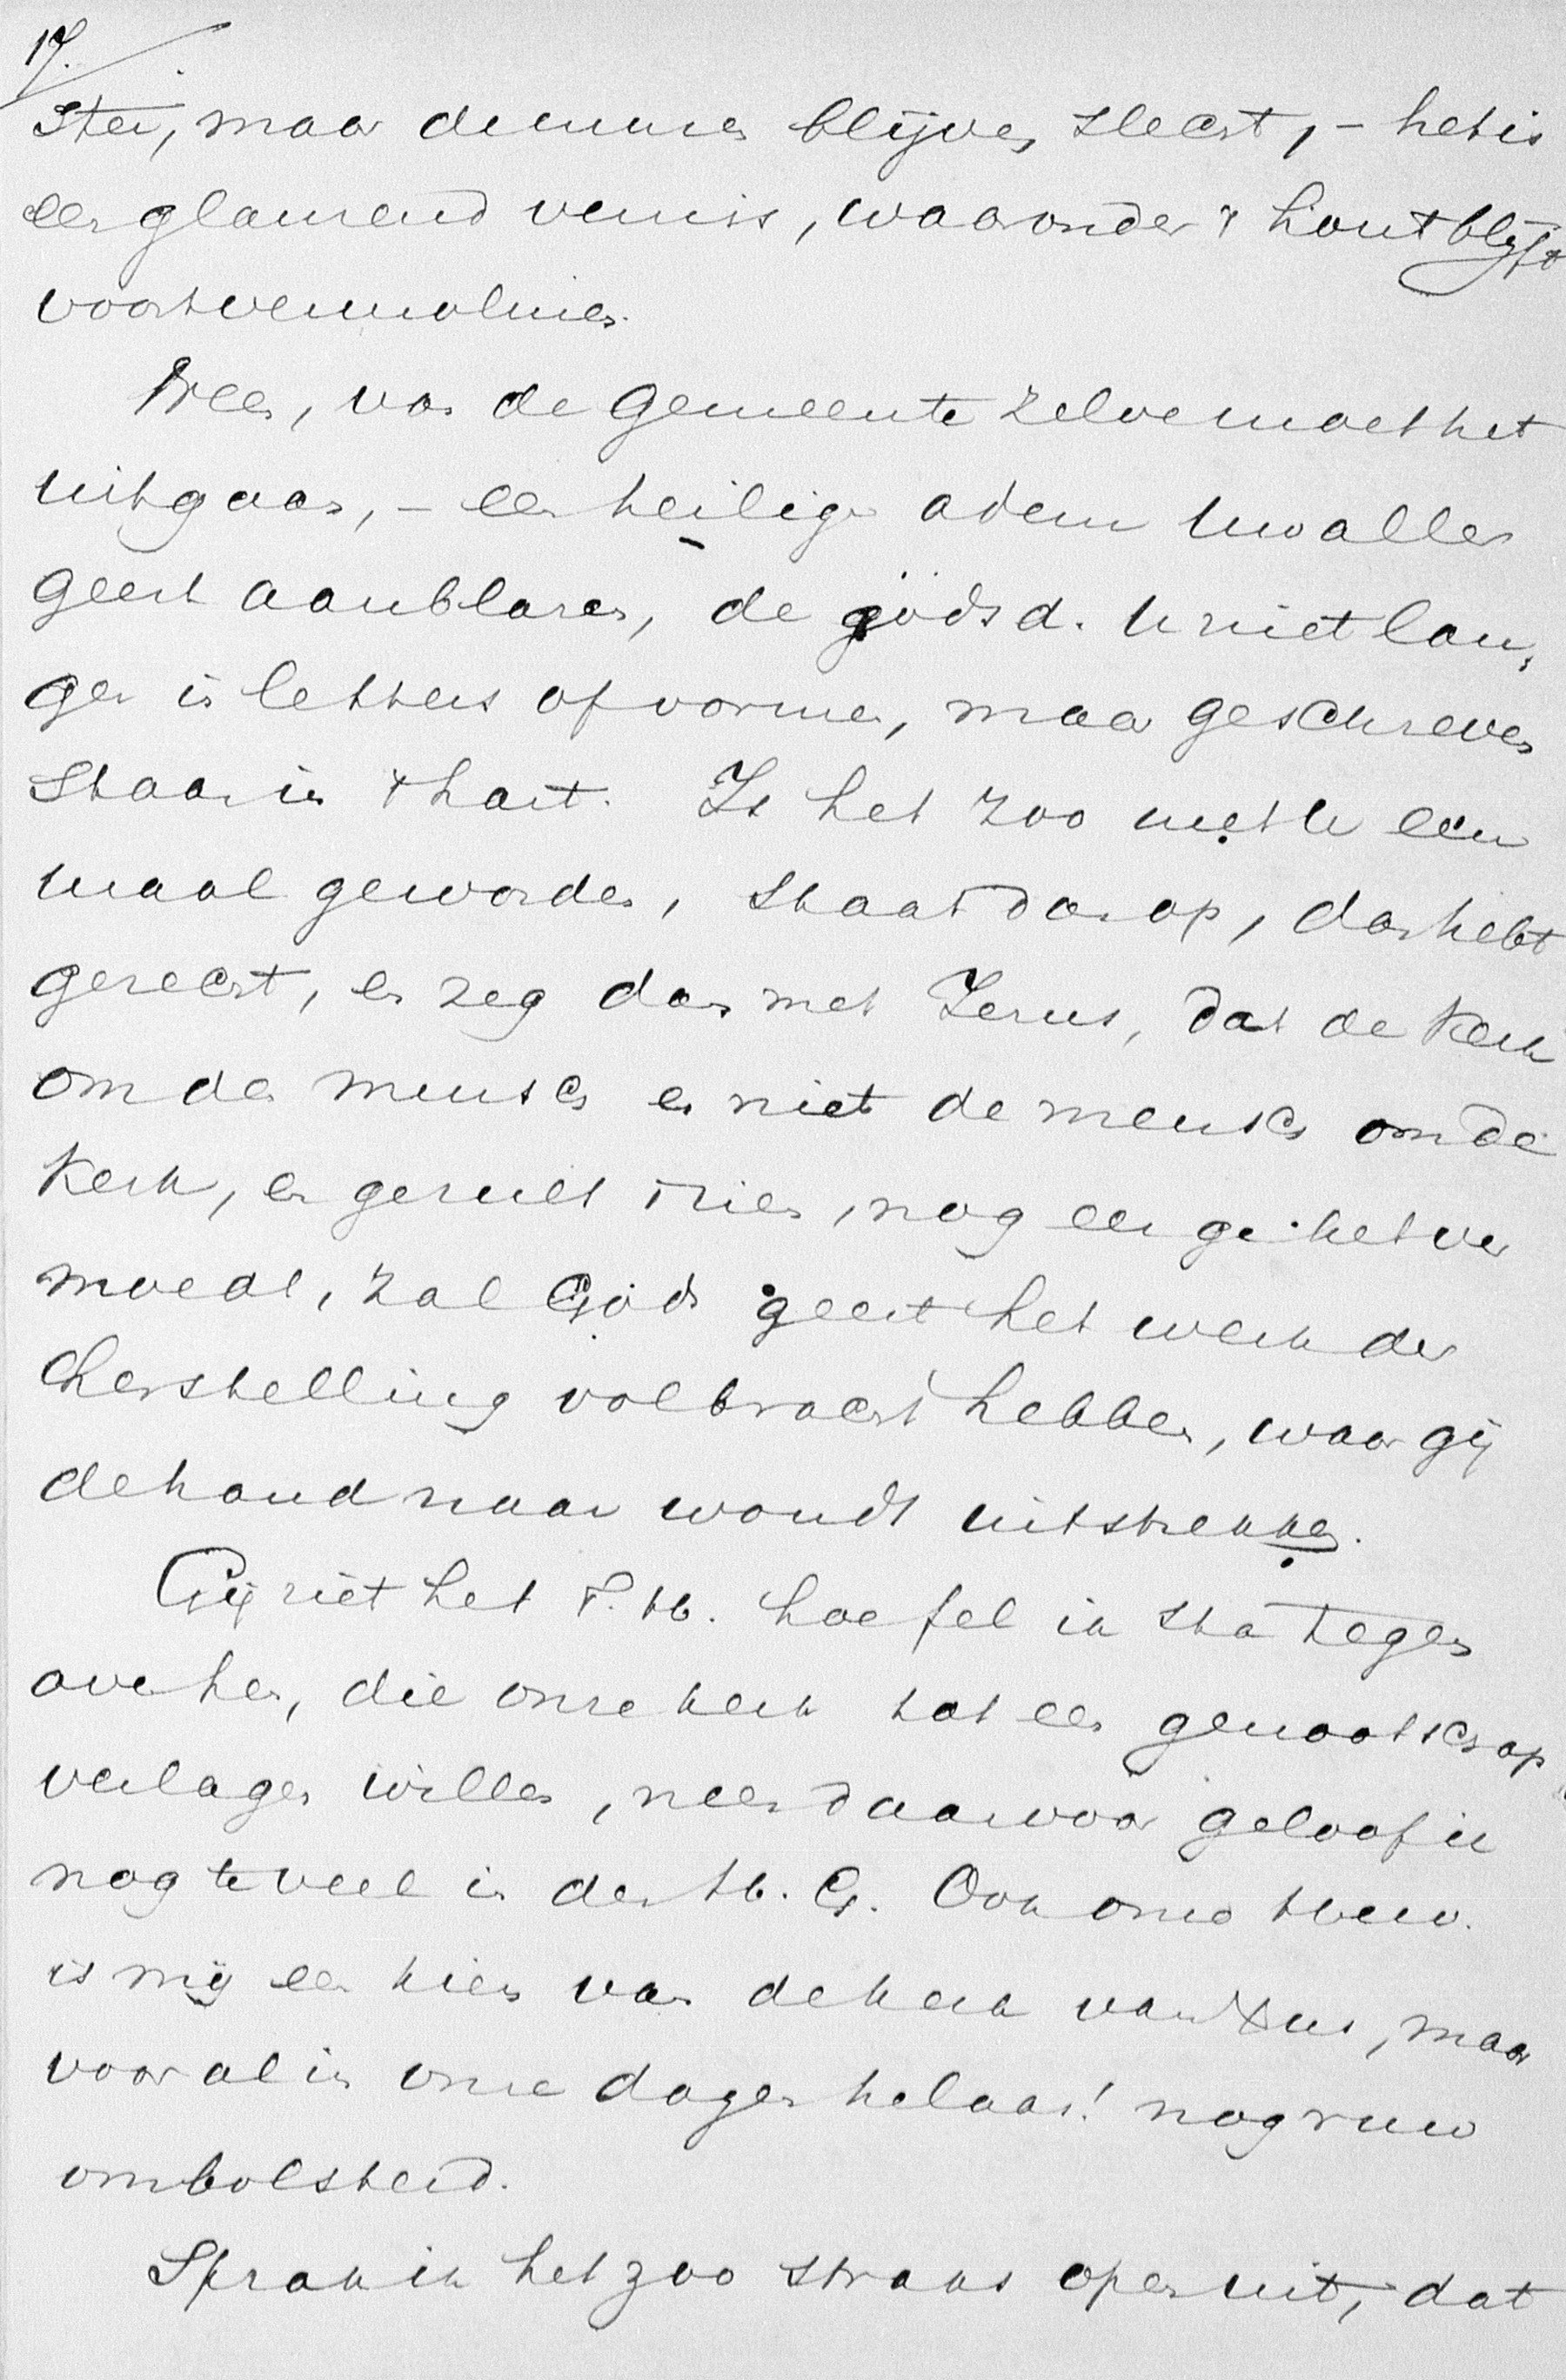 17.
ster, maar de muren blijven slecht, - het is
een glanzend vernis, waaronder 't hout blijft
voortvermolmen.
Neen, van de Gemeente zelve moet het
uitgaan, - een heilige adem Uw aller
geest aanblazen, de godsd. U niet lan-
ger in letters of vormen, maar geschreven
staan in 't hart. Is het zoo met U een
maal geworden, staat dan op, dan hebt
gerecht, en zeg dan met Jezus, dat de Kerk
om den mensch en niet de mensch om de
Kerk, en gerust zien, nog eer ge het ver
moedt, zal Gods geest het werk der
herstelling volbracht hebben, waar gij
de hand naar woudt uitstrekken.
Gij ziet het T. H. hoe fel ik sta tegen
over hen, die onze kerk tot een genootschap
verlagen willen, neen daarvoor geloof ik
nog te veel in den H. G. Ook onze Herv.
is mij een kiem van de kerk van Xus, maar
vooral in onze dagen helaas! nog ruw
ombolsterd.
Sprak ik het zoo straks open uit, dat